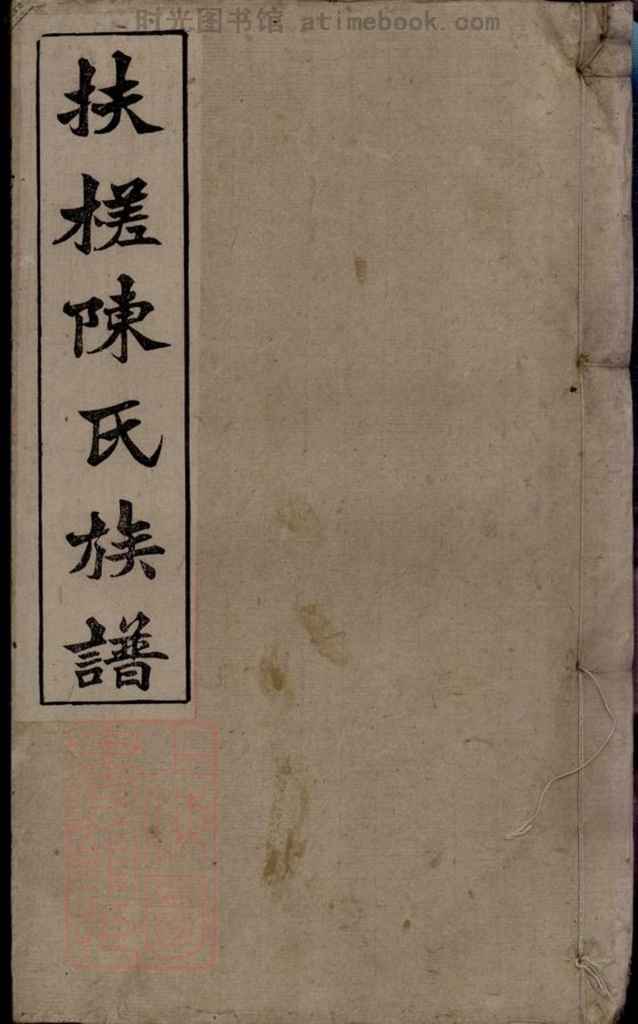 时光图书馆 atimebook.com
扶槎陳氏族譜